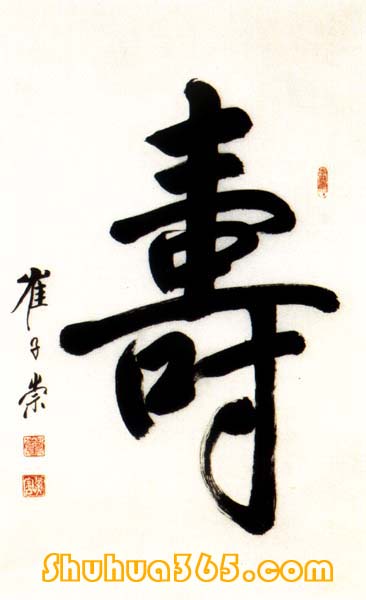 壽
崔子崇
Shuhua365.com